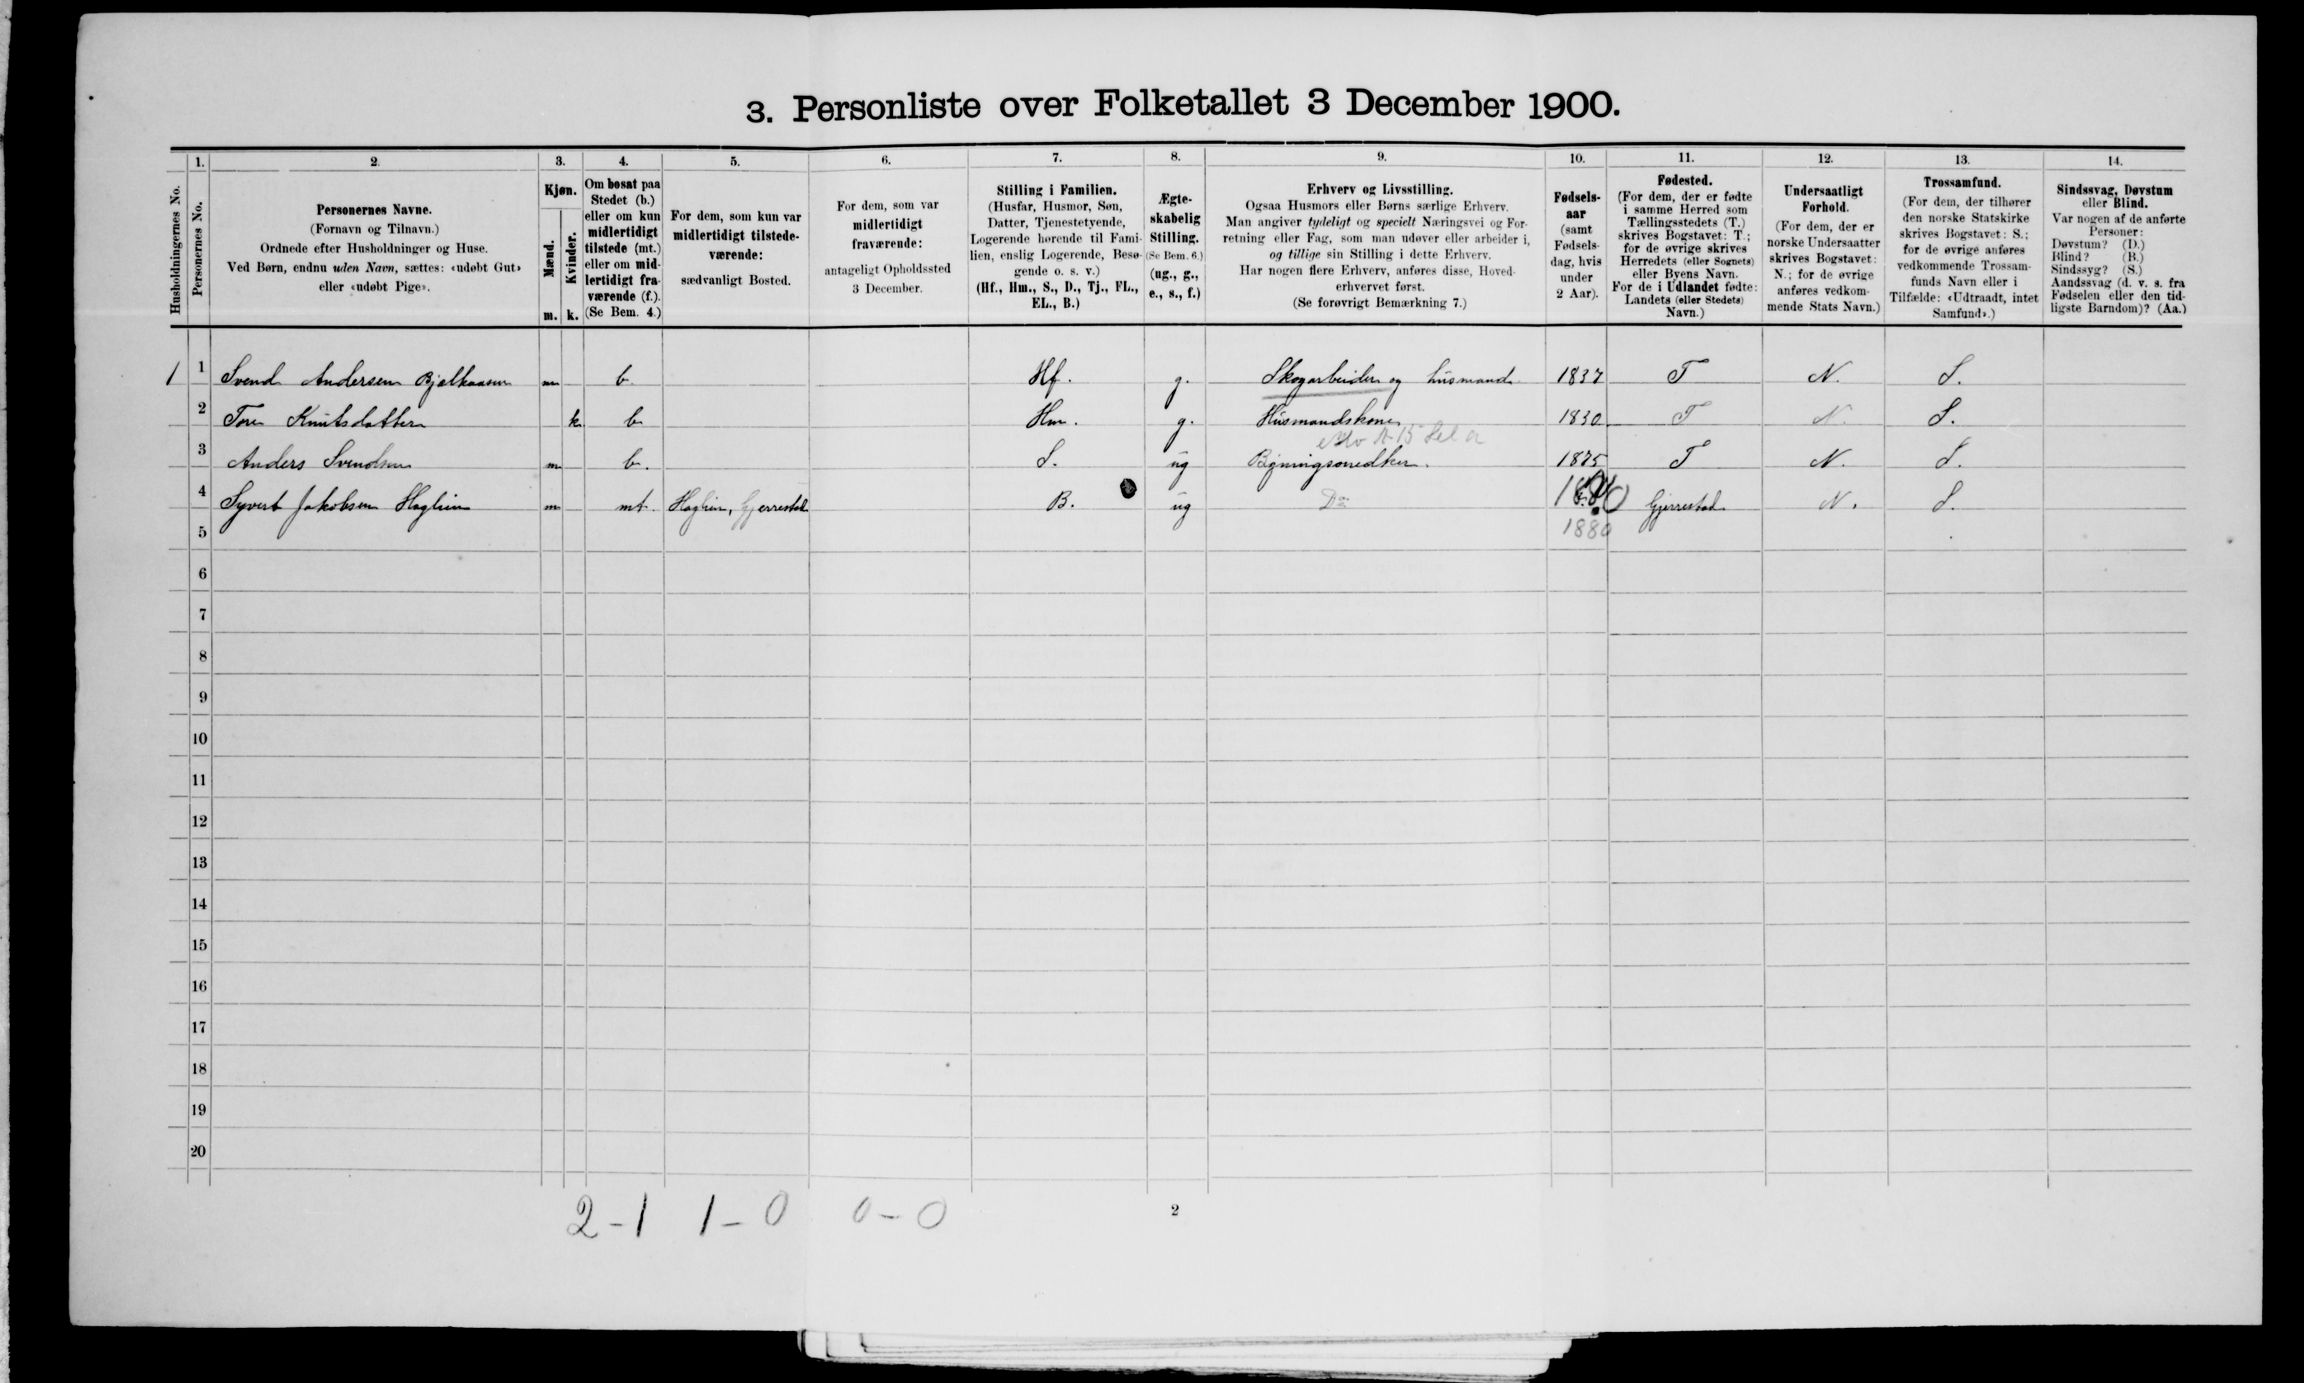 3. Personliste over Folketallet 3 December 1900.
1. 2. 3. 4. 5. 6. 7. 8. 9. 10. 11. 12. 13. 14.
Husholdningernes No.
Personernes No.
Personernes Navne.
(Fornavn og Tilnavn.)
Ordnede efter Husholdninger og Huse.
Ved Børn, endnu uden Navn, sættes: «udøbt Gut»
eller «udøbt Pige».
Kjøn.
Mænd.
Kvinder.
m. k.
Om bosat paa
Stedet (b.)
eller om kun
midlertidigt
tilstede (mt.)
eller om mid-
lertidigt fra-
værende (f.).
(Se Bem. 4.)
For dem, som kun var
midlertidigt tilstede-
værende:
sædvanligt Bosted.
For dem, som var
midlertidigt
fraværende:
antageligt Opholdssted
3 December.
Stilling i Familien.
(Husfar, Husmor, Søn,
Datter, Tjenestetyende,
Logerende hørende til Fami-
lien, enslig Logerende, Besø-
gende o. s. v.)
(Hf., Hm., S., D., Tj., FL.,
EL., B.)
Ægte-
skabelig
Stilling.
(Se Bem. 6.)
(ug., g.,
e., s., f.)
Erhverv og Livsstilling.
Ogsaa Husmors eller Børns særlige Erhverv.
Man angiver tydeligt og specielt Næringsvei og For-
retning eller Fag, som man udøver eller arbeider i,
og tillige sin Stilling i dette Erhverv.
Har nogen flere Erhverv, anføres disse, Hoved-
erhvervet først.
(Se forøvrigt Bemærkning 7.)
Fødsels-
aar
(samt
Fødsels-
dag, hvis
under
2 Aar).
Fødested.
(For dem, der er fødte
i samme Herred som
Tællingsstedets (T.)
skrives Bogstavet: T.;
for de øvrige skrives
Herredets (eller Sognets)
eller Byens Navn.
For de i Udlandet fødte:
Landets (eller Stedets)
Navn.)
Undersaatligt
Forhold.
(For dem, der er
norske Undersaatter
skrives Bogstavet:
N.; for de øvrige
anføres vedkom-
mende Stats Navn.)
Trossamfund.
(For dem, der tilhører
den norske Statskirke
skrives Bogstavet: S.;
for de øvrige anføres
vedkommende Trossam-
funds Navn eller i
Tilfælde: «Udtraadt, intet
Samfund».)
Sindssvag, Døvstum
eller Blind.
Var nogen af de anførte
Personer:
Døvstum? (D.)
Blind? (B.)
Sindssyg? (S.)
Aandssvag (d. v. s. fra
Fødselen eller den tid-
ligste Barndom)? (Aa.)
1 1 Svend Andersen Bjelkaasen m b. Hf. g. Skogarbeider og husmand 1837 T N. S.
2 Tore Knutsdatter k. b Hm. g. Husmandskone 1830 T N. S.
3 Anders Svendsen m b. S. ug Bygningssnedker. 1875 T N. S.
4 Syvert Jakobsen Haglien m mt. Haglien, Gjerrestad B. ug Do Gjerrestad N. S.
5 1880
6
7
8
9
10
11
12
13
14
15
16
17
18
19
20
2-1 1-0 0-0 2